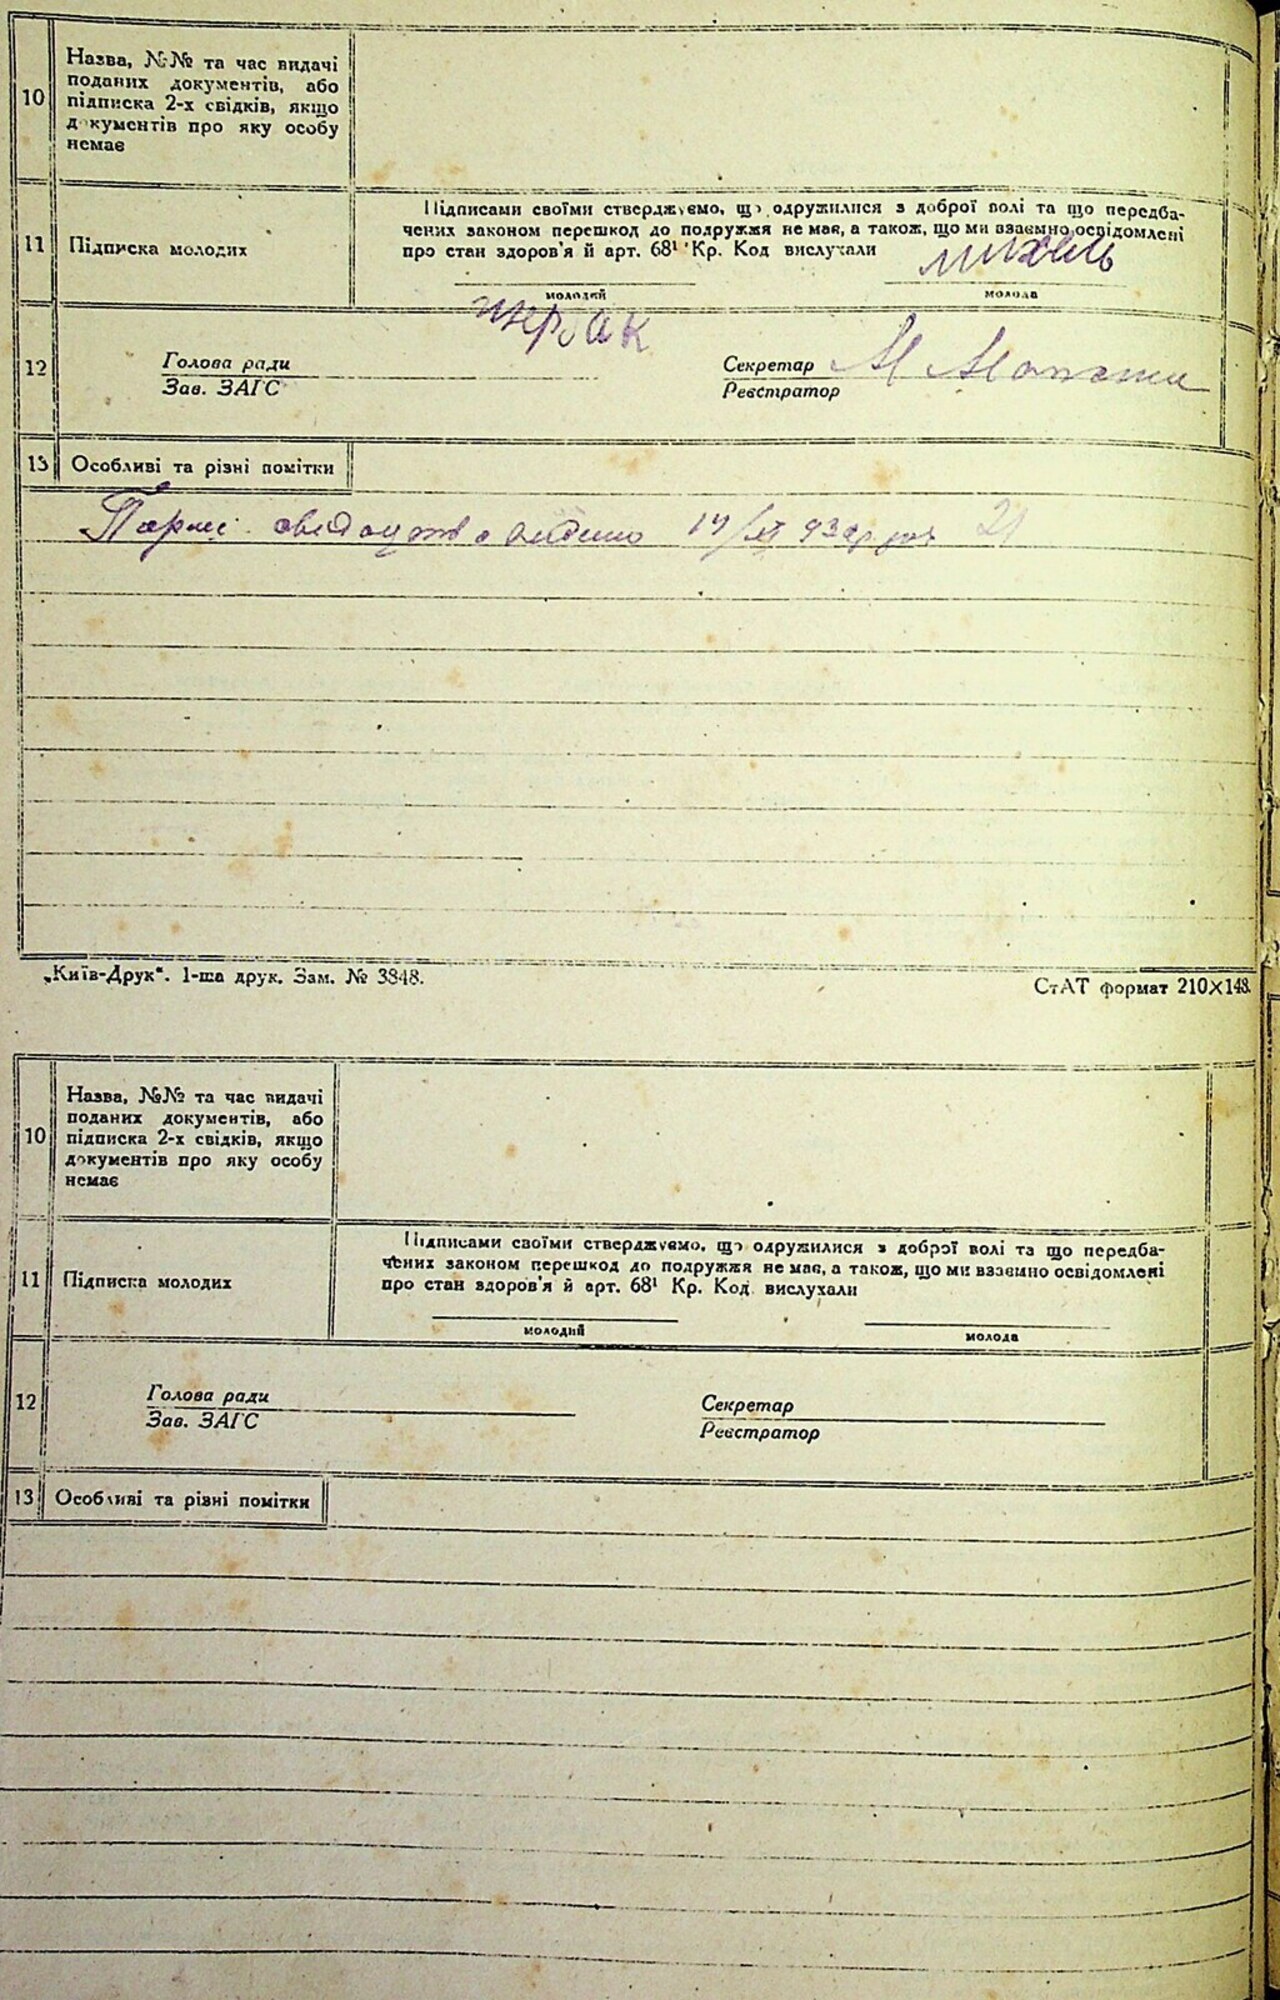 10
Назва, №№ та час видачі
поданих документів, або
підписка 2-х свідків, якщо
документів про яку особу
немає
11
Підписка молодих
Підписами своїми стверджуємо, що одружилися з доброї волі та що передба-
чених законом перешкод до подружжя не має, а також, що ми взаємно освідомлені
про стан здоров'я й арт. 68¹ Кр. Код вислухали
молодий
молода
12
Голова ради
Зав. ЗАГС
Секретар
Реєстратор
13
Особливі та різні помітки
видано 21
„Київ-Друк“. 1-ша друк. Зам. № 3848.
СтАТ формат 210×148.
10
Назва, №№ та час видачі
поданих документів, або
підписка 2-х свідків, якщо
документів про яку особу
немає
11
Підписка молодих
Підписами своїми стверджуємо, що одружилися з доброї волі та що передба-
чених законом перешкод до подружжя не має, а також, що ми взаємно освідомлені
про стан здоров'я й арт. 68¹ Кр. Код вислухали
молодий
молода
12
Голова ради
Зав. ЗАГС
Секретар
Реєстратор
13
Особливі та різні помітки